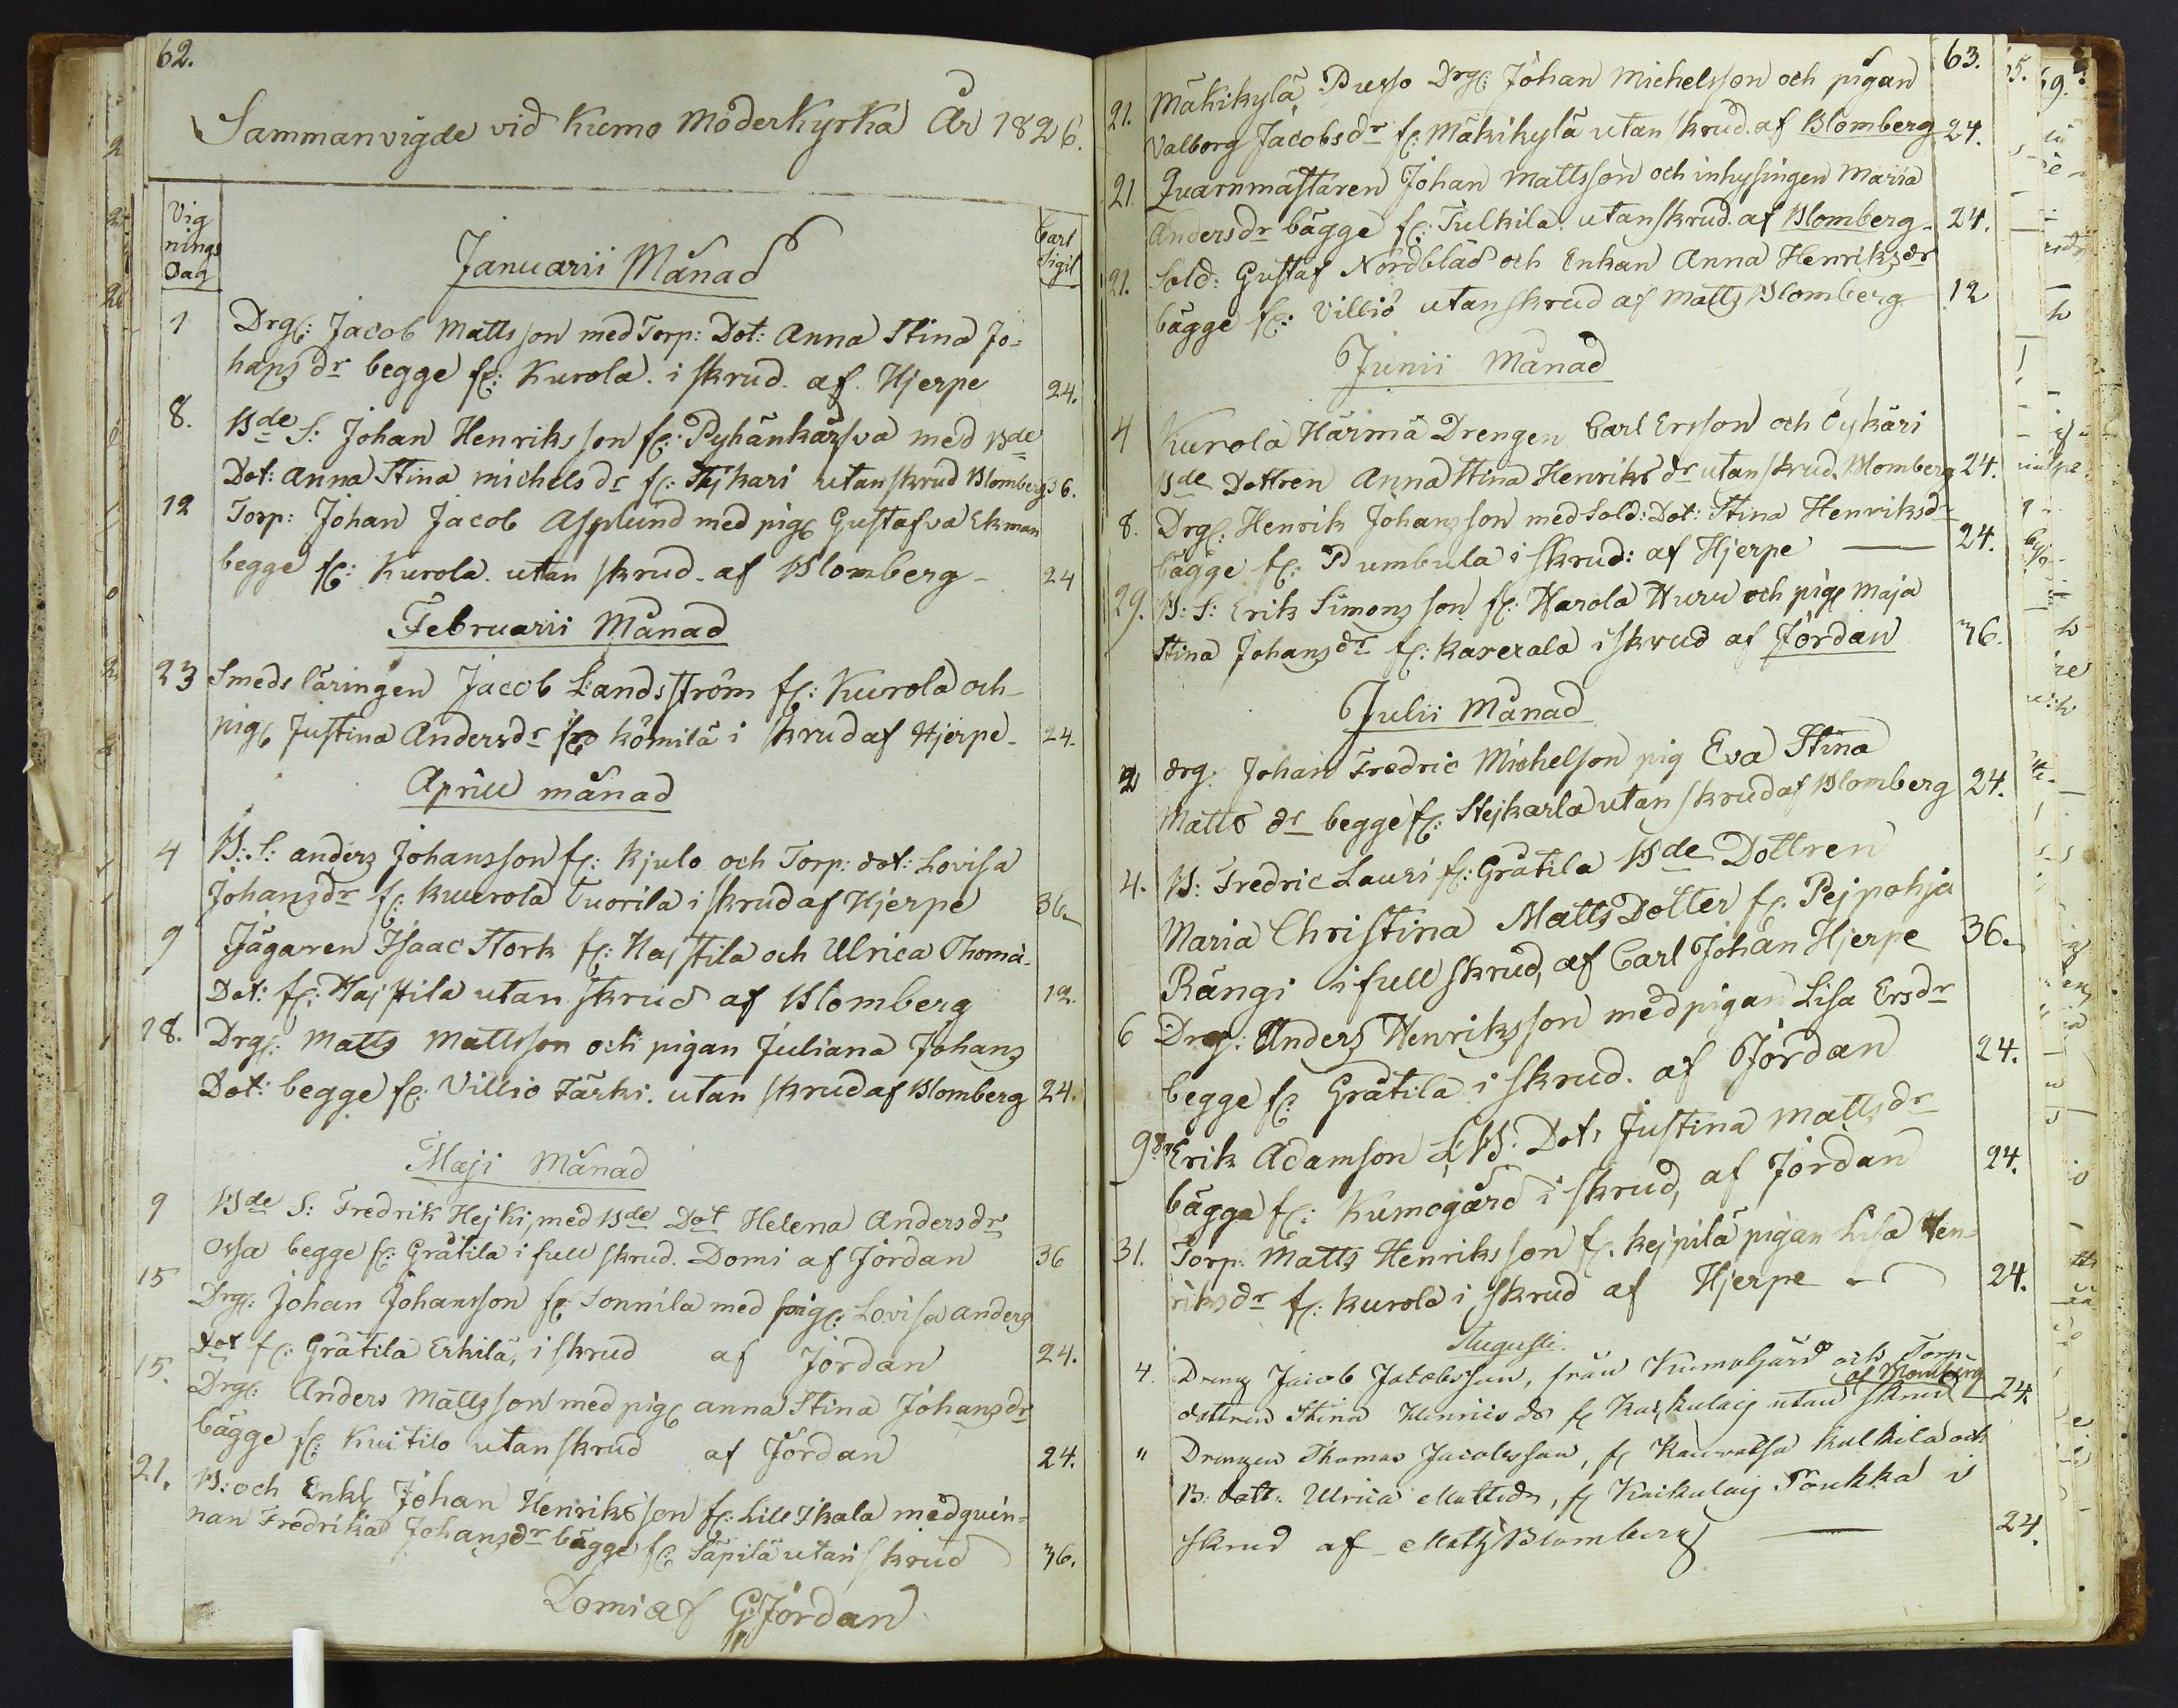 62.
Sammanvigde vid Kumo Moderkyrka År 1826.
Vig
nings
Dag
Carl
Sigil
Januarii Månad
1 Drg: Jacob Mattsson med Torp: Dot: Anna Stina Jo=
hansdr begge fr: Kurola. i skrud. af Hjerpe 24.
8. Bde S: Johan Henriksson fr: Pyhänkårfva med Bde
Dot: Anna Stina Michelsdr fr: utan skrud Blomberg 36.
12 Torp: Johan Jacob Asplund med pig Gustafva Ekman
begge fr: Kurola. utan skrud. af Blomberg - 24
Februarii Månad
23 Smeds läringen Jacob Landsström fr: Kurola och
pig Justina Andersdr fr Kömilä i skrud af Hjerpe - 24.
Aprill månad
4 B: S: anders Johansson fr: Kjulo och Torp: dot: Lovisa
Johansdr fr: Kuurola Tuorila i skrud af Hjerpe 36
9 Jägaren Isaac Stork fr: Hajstila och Ulrica Thoma-
Dot: fr: Hajstila utan skrud af Blomberg 12.
18. Drg: Matts Mattsson och pigan Juliana Johans
Dot: begge fr: Villio Färki. utan skrud af Blomberg 24.
Maji Månad
9 Bde S: Fredrik Hejki, med Bde Dot Helena Andersdr
Ossa begge fr: Gråtila i full skrud. Domi af Jordan 36
15 Drg: Johan Johansson fr: Sonnila med pig: Lovisa anders
dot fr: Gråtila Erkilä, i skrud af Jordan 24.
15. Drg: Anders Mattsson med pig anna Stina Johansdr
bägge fr: Kuitilo utan skrud af Jordan 24.
21. B: och Enkl Johan Henriksson fr: Lill Ikala med quin=
nan Fredrika Johansdr bägge fr: Säpilä utan skrud 36.
Domi af G: Jordan
63.
21. Mäkikylä Pusso Drg: Johan Michelsson och pigan
Valborg Jacobsdr fr: Mäkikylä utan skrud. af Blomberg 24.
21. Quarnmästaren Johan Mattsson och inhysingen Maria
Andersdr bägge fr: Tulkila utan skrud. af Blomberg - 24.
21. Sold: Gustaf Nordblad och Enkan Anna Henriksdr
bägge fr: Villiö utan skrud af Matts Blomberg 12
Junii Månad
4 Kurola Härmä Drengen Carl Ersson och Öykäri
Bde Dottren Anna Stina Henriks dr utan skrud. Blomberg 24.
8. Drg: Henrik Johansson med Sold: Dot: Stina Henriksdr
bägge fr: Pumbula i skrud: af Hjerpe 24.
29. B: S: Erik Simonsson fr: Harola Huru och pig Maja
Stina Johansdr fr: i skrud af Jordan 36.
Julii Månad
2 drg. Johan Fredric Michelson pig Eva Stina
Matts dr begge fr: Stejkarla utan skrud af Blomberg 24.
4. B: Fredric Lauri fr: Gråtila Bde Dottren
Maria Christina Matts Dotter fr: Pejpohja
Rängi i full skrud, af Carl Johan Hjerpe 36.
6 Drg: Anders Henriksson med pigan Lisa Ersdr
begge fr: Gråtila i skrud. af Jordan 24.
9 Erik Adamson B: Dot: Justina Mattsdr
bägga fr: Kumogård i skrud, af Jordan 24.
31. Torp: Matts Henriksson fr. Kejpilä pigan Lisa Hen=
riksdr fr: Kurola i skrud af Hjerpe 24.
Augusti.
4. Dreng Jacob Jacobsson, från Kumogård och Torp-
dottren Stina Henrics dr fr utan skrud af Blomberg 24
" Drengen Thomas Jacobsson, fr Kauvatsa Kulkila och
B: dott: Ulrica Mattsdr, fr Poukka i
skrud af Matts Blomberg 24.